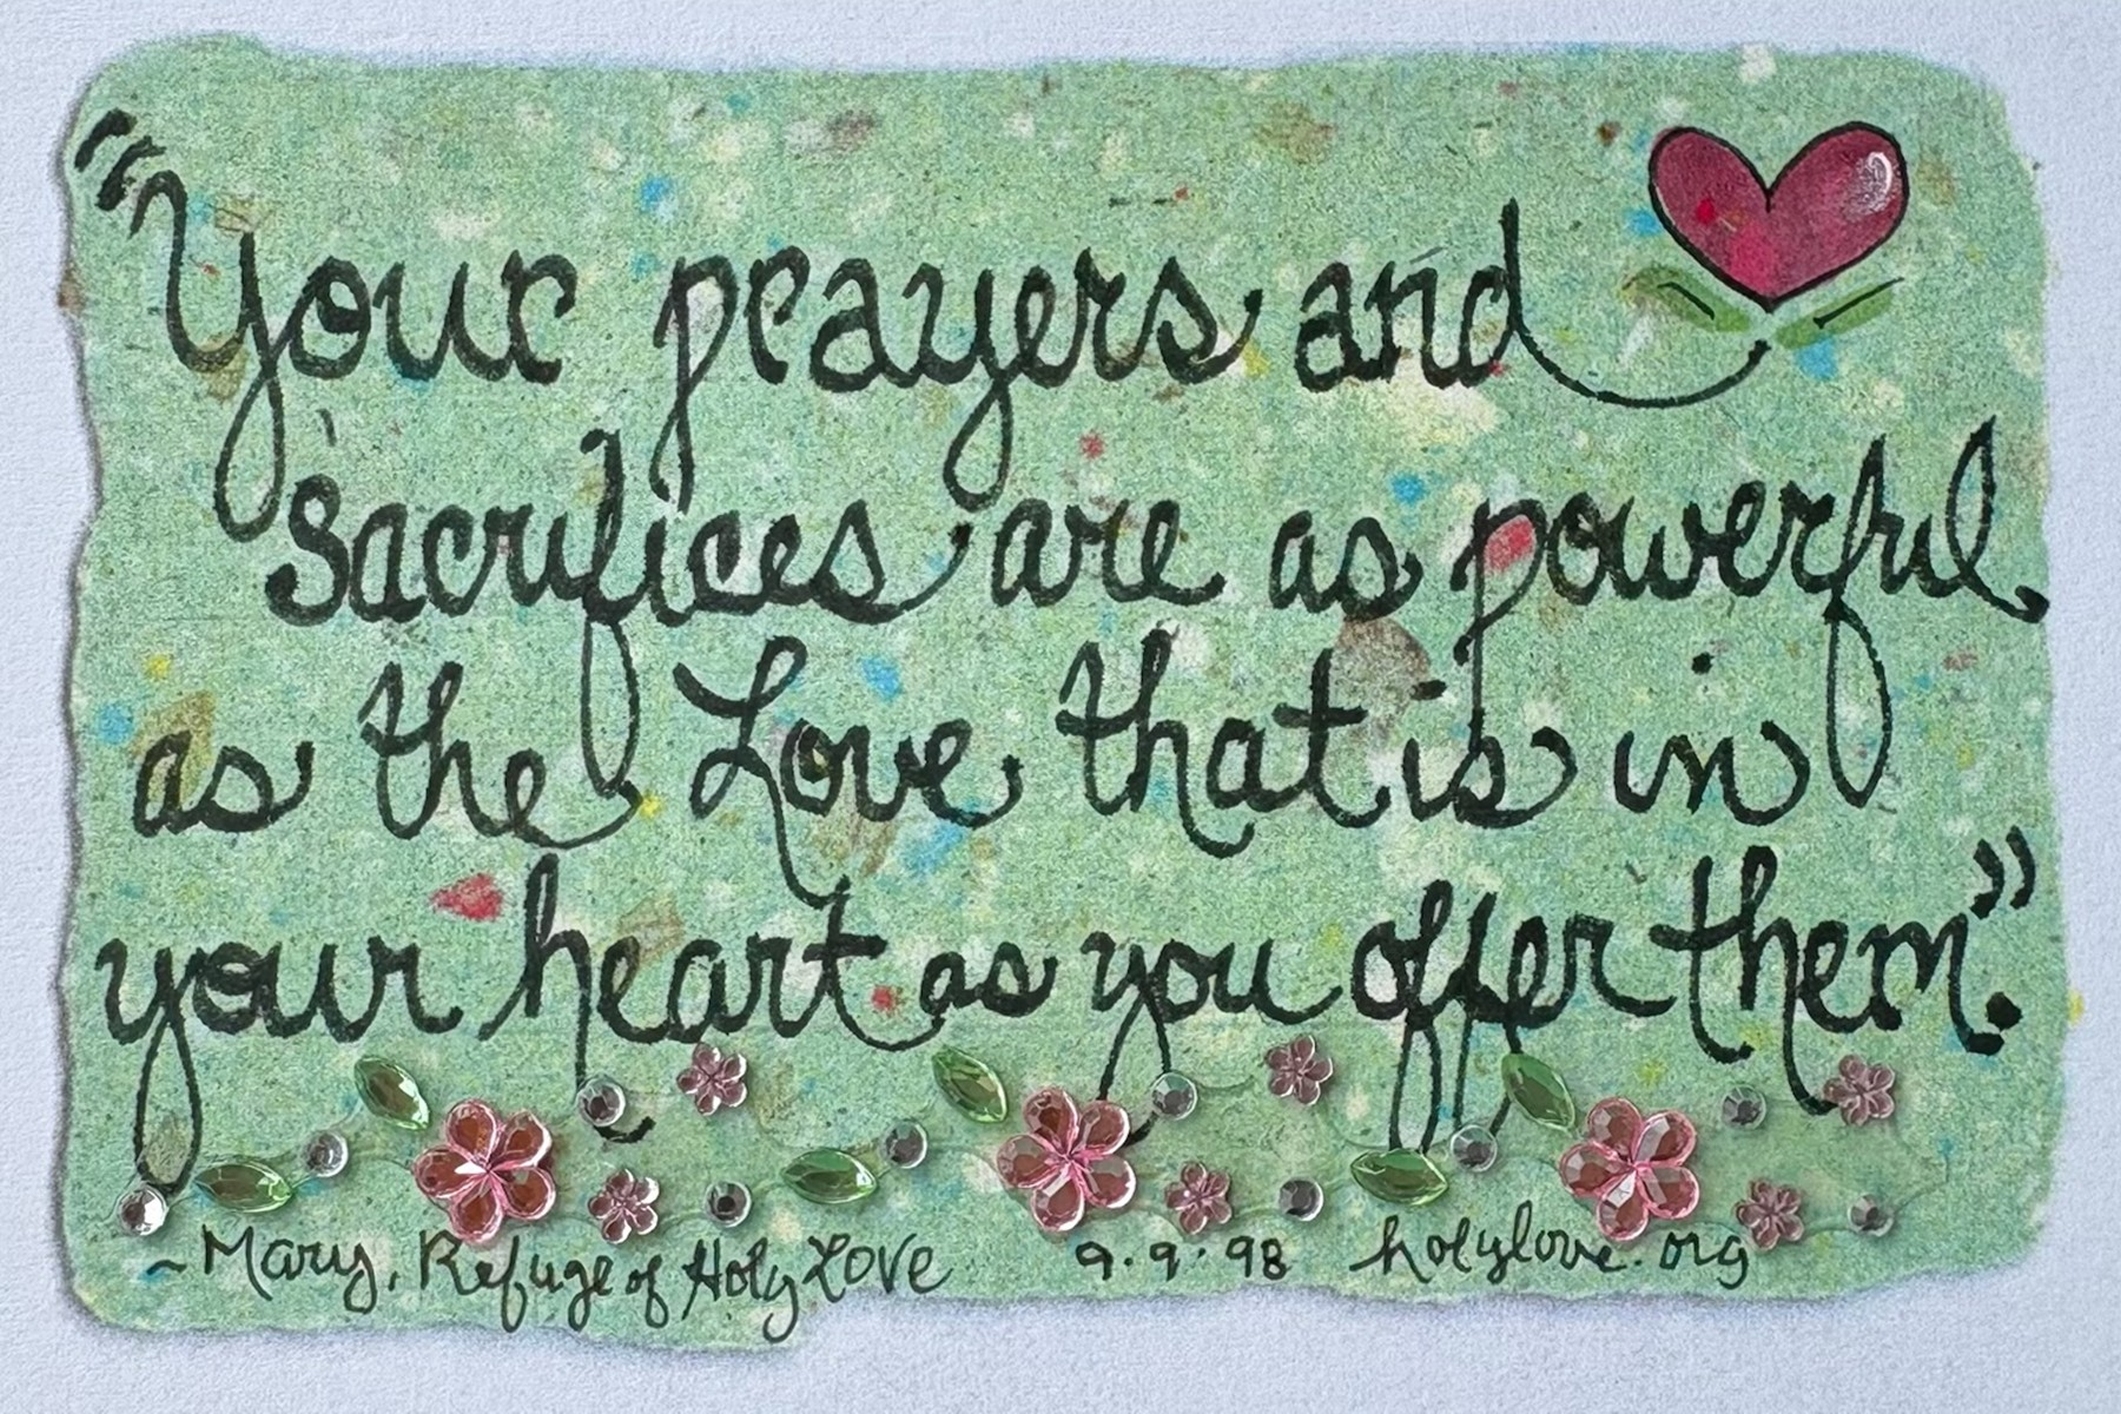 "Your prayers and
sacrifices are as powerful
as the Love that is in
your heart as you offer them."
~Mary, Refuge of Holy Love 9.9.98 holylove.org